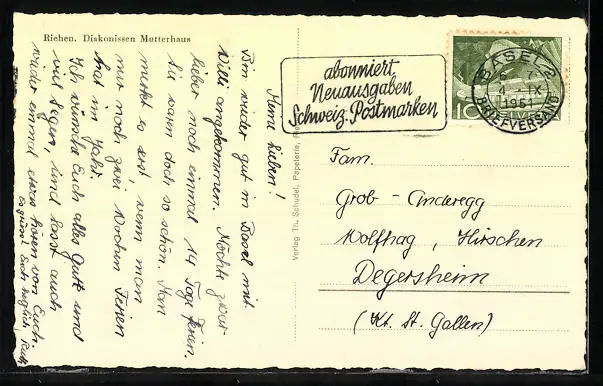 Riehen. Diakonissen Mutterhaus
Meine Lieben!
Bin wieder gut in Basel mit
Willi angekommen. Möchte zwar
lieber noch einmal 14 Tage Ferien,
es waren doch so schön. Man
merkt es erst, wenn man
nur noch zwei Wochen Ferien
hat im Jahr.
Ich wünsche Euch alles Gute und
viel Segen, und lasst auch
wieder einmal etwas hören von Euch.
Es grüsst Euch herzlich
Verlag Th. Schudel, Papeterie,
abonniert
Neuausgaben
Schweiz. Postmarken
BASEL 2
4. IX
1951
BRIEFVERSAND
10
HELVETIA
Fam.
Grob - Anderegg
Wolfhag, Hirschen
Degersheim
(Kt. St. Gallen)